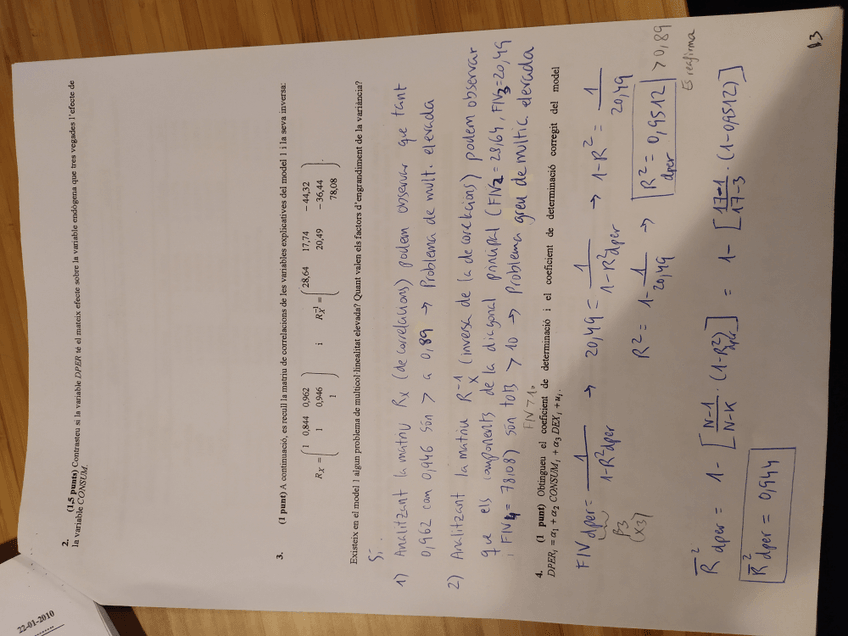 2. (1,5 punts) Contrasteu si la variable DPER té el mateix efecte sobre la variable endògena que tres vegades l'efecte de
la variable CONSUM.
3. (1 punt) A continuació, es recull la matriu de correlacions de les variables explicatives del model I i la seva inversa:
R_X = ( 1 0,844 0,962
1 0,946
1 ) i R_X^-1 = ( 28,64 17,74 − 44,32
20,49 − 36,44
78,08 ).
Existeix en el model I algun problema de multicol·linealitat elevada? Quant valen els factors d'engrandiment de la variància?
Sí.
1) Analitzant la matriu Rx (de correlacions) podem observar que tant
0,962 com 0,946 són > a 0,89 → Problema de mult. elevada
2) Analitzant la matriu R_x^-1 (inversa de la de correlacions) podem observar
que els components de la diagonal principal (FIV2 = 28,64, FIV3 = 20,49
i FIV4 = 78,08) són tots > 10 → Problema greu de multic. elevada
FIV > 10
4. (1 punt) Obtingueu el coeficient de determinació i el coeficient de determinació corregit del model
DPER_i = α1 + α2 CONSUM_i + α3 DEX_i + u_i.
FIV dper = 1 / (1-R² dper) → 20,49 = 1 / (1-R² dper) → 1-R² = 1 / 20,49
β3
(X3)
R² = 1 - 1 / 20,49 → R² dper = 0,9512 > 0,89
Es reafirma
R̄² dper = 1 - [ (N-1) / (N-K) · (1-R² dper) ] = 1 - [ (17-1) / (17-3) · (1-0,9512) ]
R̄² dper = 0,944
13
22-01-2010